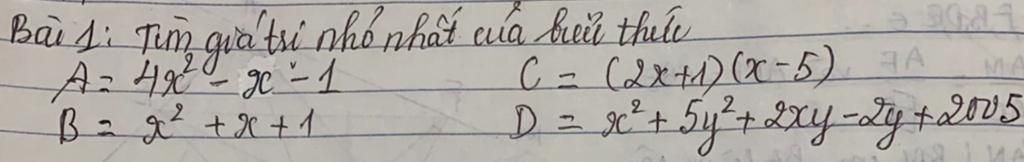 Bài 1: Tìm giá trị nhỏ nhất của biểu thức
A = 4x² - x - 1 C = (2x+1)(x-5)
B = x² + x + 1 D = x² + 5y² + 2xy - 2y + 2005